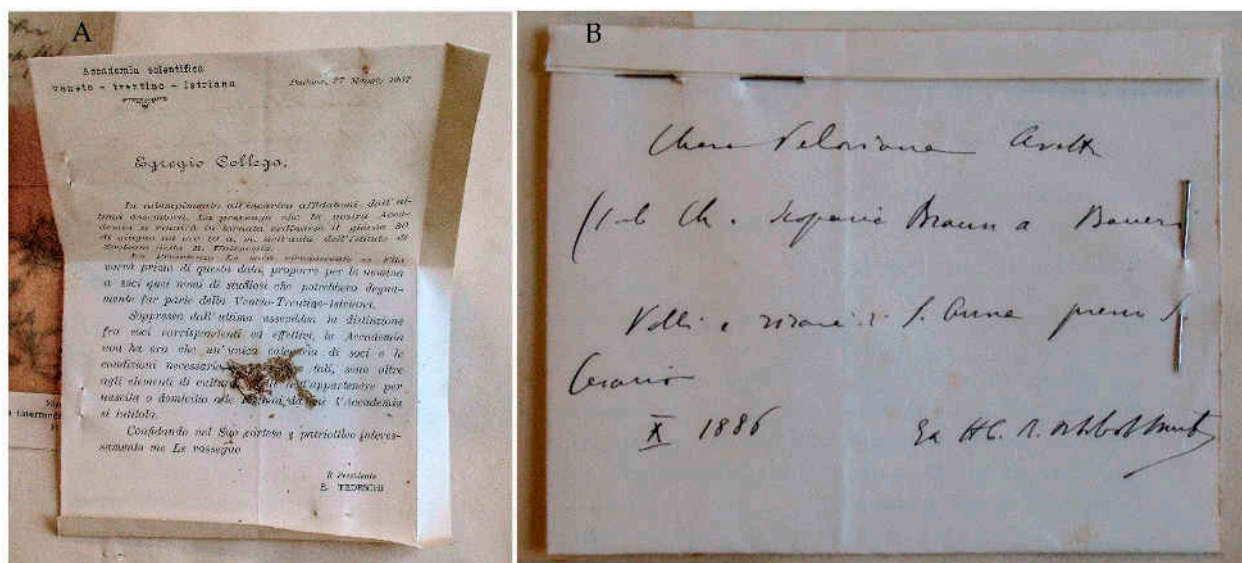 A
Accademia scientifica
veneto - trentino - istriana
Padova, 27 Maggio 1907
Egregio Collega,
In adempimento all'incarico affidatomi dall'ul-
tima assemblea, La prevengo che la nostra Acca-
demia si riunirà in tornata ordinaria il giorno 30
di giugno ad ore 10 a. m. nell'aula dell'Istituto di
della R. Università.
La
vorrà prima di questa data, proporre per la nomina
a soci quei nomi di studiosi che potrebbero degna-
mente far parte della Veneto-Trentino-Istriana.
Soppressa dall'ultima assemblea la distinzione
fra soci corrispondenti ed effettivi, la Accademia
non ha ora che un'unica categoria di soci e le
condizioni necessarie tali, sono oltre
agli elementi di cultura dell'appartenere per
nascita o domicilio alle da cui l'Accademia
si intitola.
Confidando nel Suo cortese e patriottico interes-
samento me Le rassegno
Il Presidente
E. TEDESCHI
B
Chara
Ch. scoparia Braun a Baueri
Valli e risaie di S. Anna presso S.
Cesario
X 1886
Ex